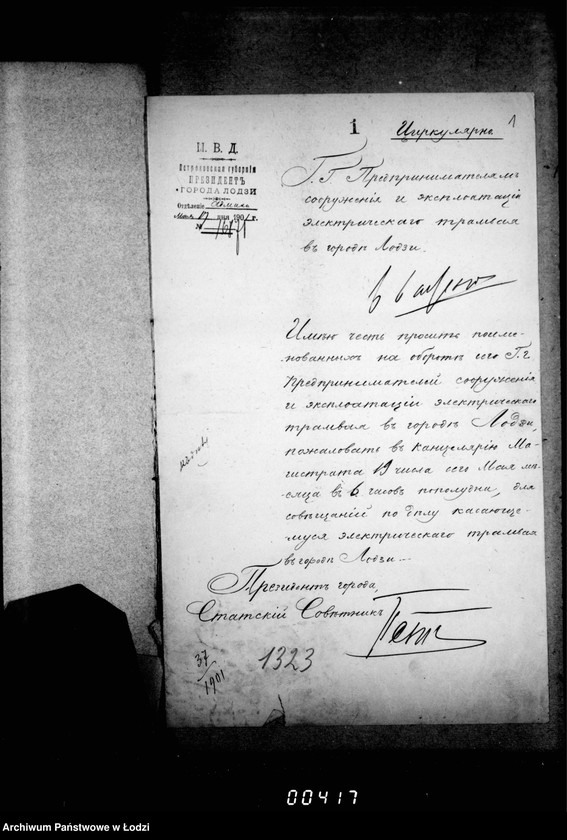 1
Циркулярно 1
М. В. Д.
Петроковская губернія
ПРЕЗИДЕНТЪ
ГОРОДА ЛОДЗИ
Отдѣленіе
Мая 17 дня 1901 г.
№
Г.Г. Предпринимателямъ
сооруженія и эксплоатаціи
электрическаго трамвая
въ городѣ Лодзи.
Имѣю честь просить поиме-
нованныхъ на оборотѣ сего Г.г.
Предпринимателей сооруженія
и эксплоатаціи электрическаго
трамвая въ городѣ Лодзи,
пожаловать въ канцелярію Ма-
гистрата 19 числа сего Мая мѣ-
сяца въ 6 часовъ пополудни, для
совѣщаній по дѣлу касающе-
муся электрическаго трамвая
въ городѣ Лодзи.
Президентъ города,
Статскій Совѣтникъ
37/1901
1323
00417
Archiwum Państwowe w Łodzi